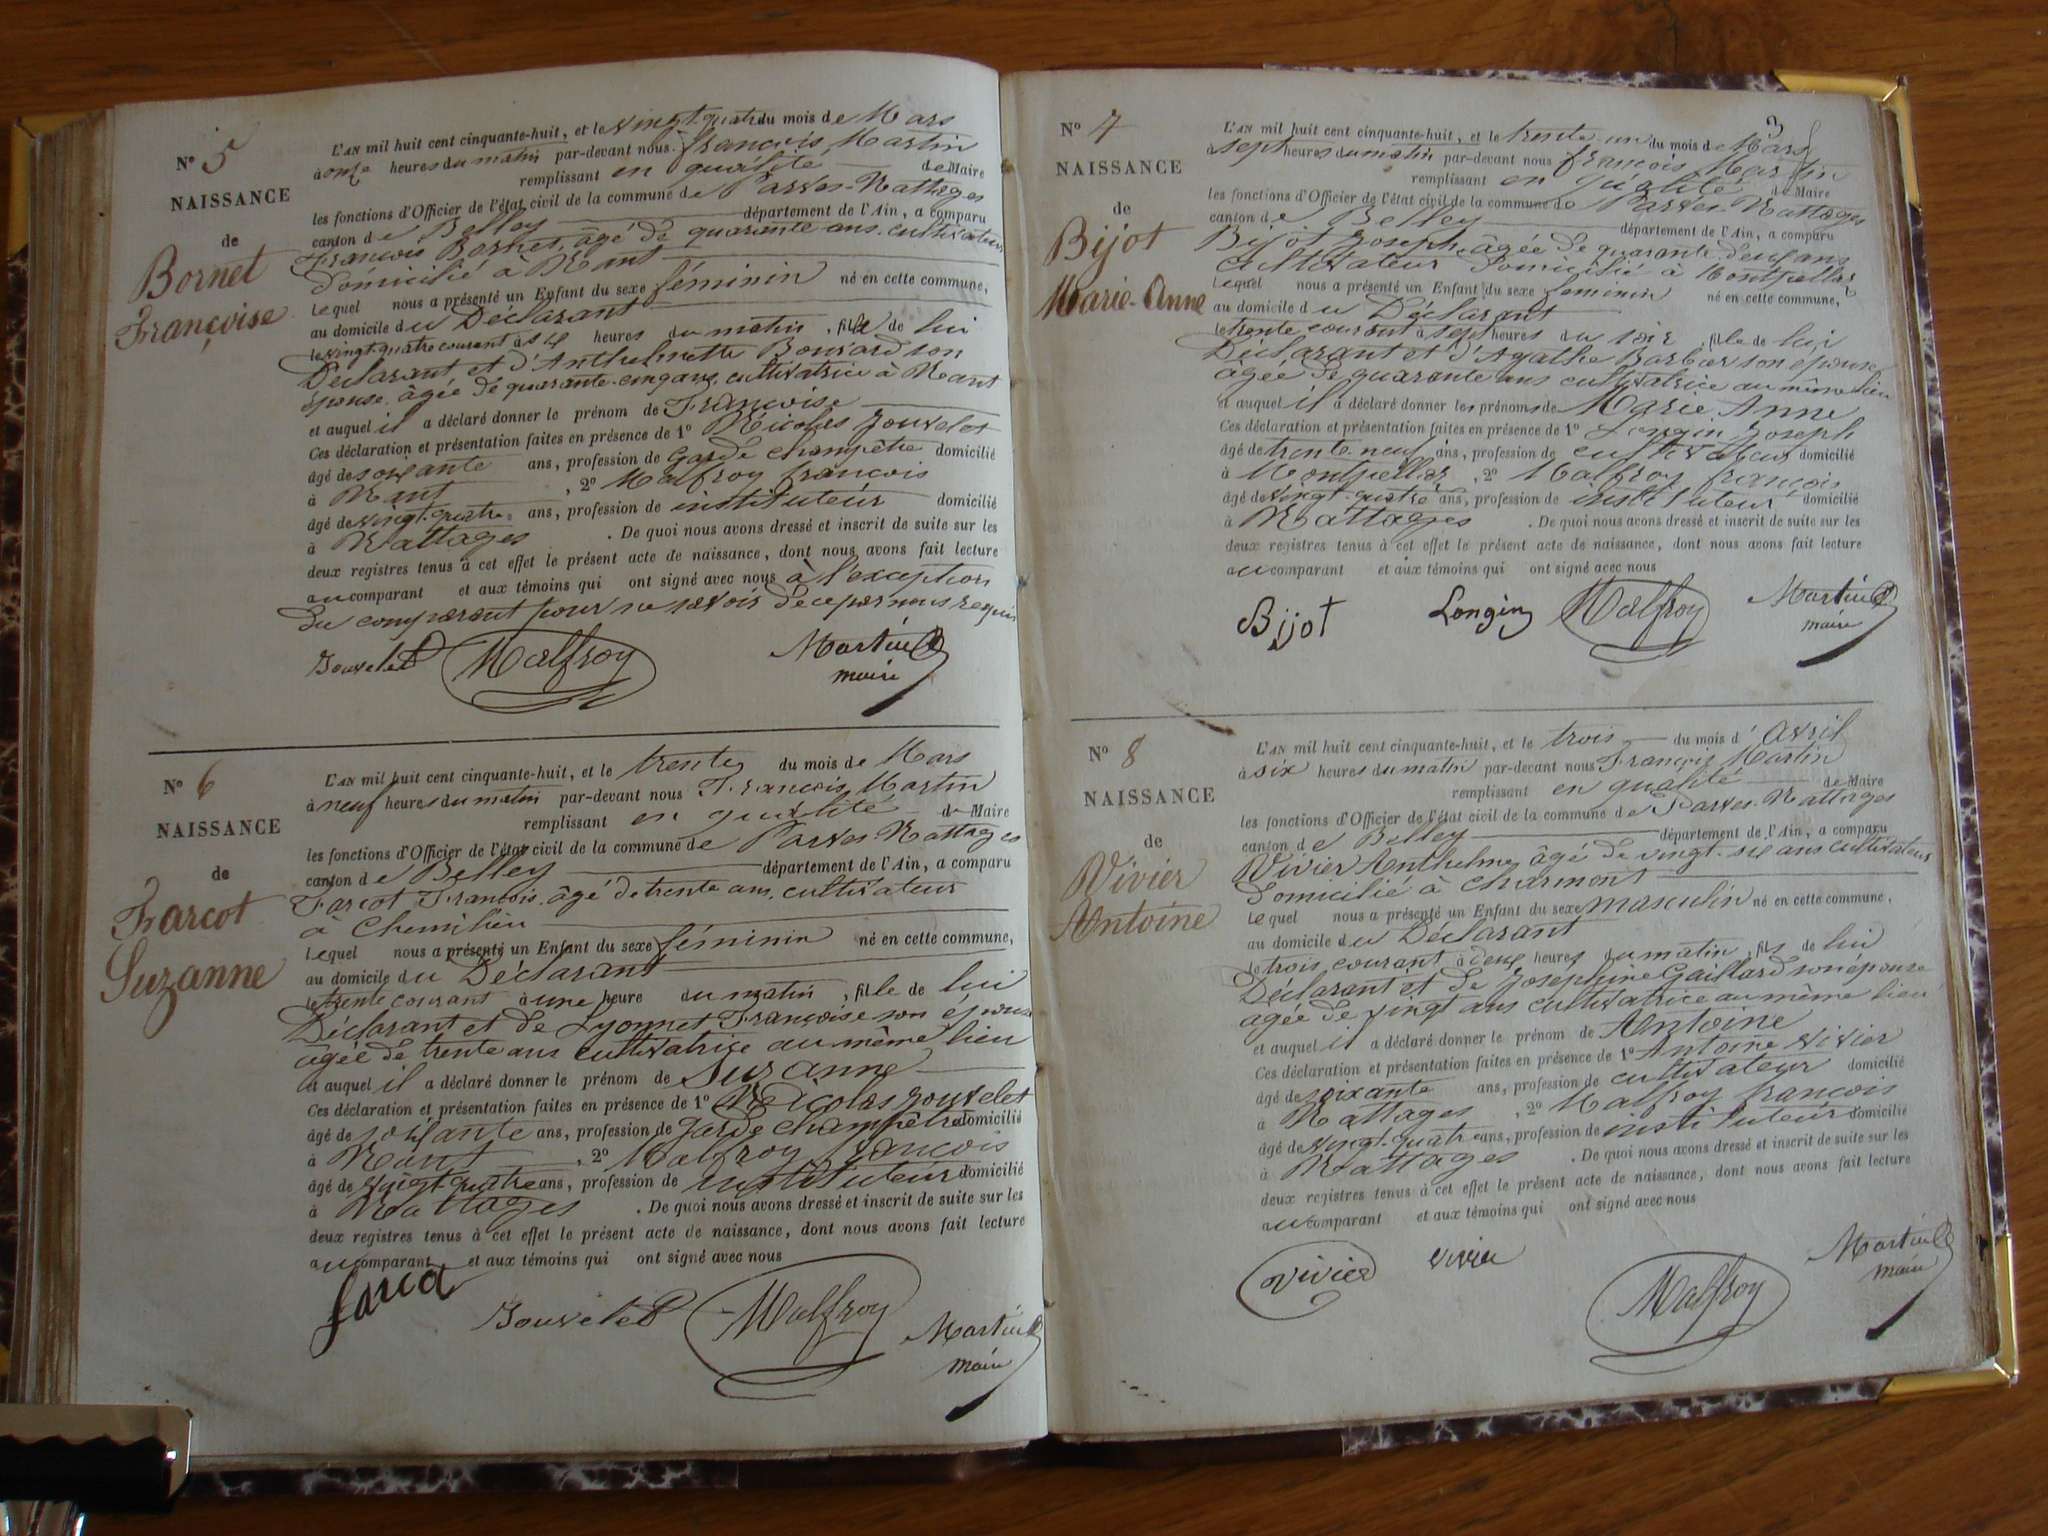 N° 5
NAISSANCE
de
Bornet
Françoise
L'AN mil huit cent cinquante-huit, et le vingt-quatre du mois de Mars
à onze heures du matin par-devant nous François Martin
remplissant en qualité de Maire
les fonctions d'Officier de l'état civil de la commune de Parves-Nattages
canton de Belley département de l'Ain, a comparu
François Bornet, âgé de quarante ans, cultivateur
domicilié à Nant
Lequel nous a présenté un Enfant du sexe féminin né en cette commune,
au domicile du Déclarant
le vingt-quatre courant à six heures du matin, fille de lui
Déclarant et d'Anthelmette Bouvard son
épouse, âgée de quarante-cinq ans, cultivatrice à Nant
et auquel il a déclaré donner le prénom de Françoise
Ces déclaration et présentation faites en présence de 1° Nicolas Jouvelet
âgé de soixante ans, profession de Garde champêtre domicilié
à Nant, 2° Malfroy François
âgé de vingt-quatre ans, profession de instituteur domicilié
à Nattages. De quoi nous avons dressé et inscrit de suite sur les
deux registres tenus à cet effet le présent acte de naissance, dont nous avons fait lecture
au comparant et aux témoins qui ont signé avec nous à l'exception
du comparant pour ne savoir de ce par nous requis
Jouvelet Malfroy Martin
maire
N° 6
NAISSANCE
de
Farcot
Suzanne
L'AN mil huit cent cinquante-huit, et le trente du mois de Mars
à neuf heures du matin par-devant nous François Martin
remplissant en qualité de Maire
les fonctions d'Officier de l'état civil de la commune de Parves-Nattages
canton de Belley département de l'Ain, a comparu
Farcot François, âgé de trente ans, cultivateur
à Chemilieu
Lequel nous a présenté un Enfant du sexe féminin né en cette commune,
au domicile du Déclarant
le trente courant à une heure du matin, fille de lui
Déclarant et de Lyonnet Françoise son épouse
âgée de trente ans cultivatrice au même lieu
et auquel il a déclaré donner le prénom de Suzanne
Ces déclaration et présentation faites en présence de 1° Nicolas Jouvelet
âgé de soixante ans, profession de Garde champêtre domicilié
à Nant, 2° Malfroy François
âgé de vingt-quatre ans, profession de instituteur domicilié
à Nattages. De quoi nous avons dressé et inscrit de suite sur les
deux registres tenus à cet effet le présent acte de naissance, dont nous avons fait lecture
au comparant et aux témoins qui ont signé avec nous
farcot
Jouvelet Malfroy Martin
maire
3
N° 7
NAISSANCE
de
Bijot
Marie-Anne
L'AN mil huit cent cinquante-huit, et le trente-un du mois de Mars
à sept heures du matin par-devant nous François Martin
remplissant en qualité de Maire
les fonctions d'Officier de l'état civil de la commune de Parves-Nattages
canton de Belley département de l'Ain, a comparu
Bijot Joseph, âgée de quarante-deux ans
cultivateur domicilié à Montpellaz
Lequel nous a présenté un Enfant du sexe féminin né en cette commune,
au domicile du Déclarant
le trente courant à sept heures du soir, fille de lui
Déclarant et d'Agathe Barbier son épouse
âgée de quarante ans cultivatrice au même lieu
et auquel il a déclaré donner les prénoms de Marie Anne
Ces déclaration et présentation faites en présence de 1° Longin Joseph
âgé de trente-neuf ans, profession de cultivateur domicilié
à Montpellaz, 2° Malfroy François
âgé de vingt-quatre ans, profession de instituteur domicilié
à Nattages. De quoi nous avons dressé et inscrit de suite sur les
deux registres tenus à cet effet le présent acte de naissance, dont nous avons fait lecture
au comparant et aux témoins qui ont signé avec nous
Bijot Longin Malfroy Martin
maire
N° 8
NAISSANCE
de
Vivier
Antoine
L'AN mil huit cent cinquante-huit, et le trois du mois d'Avril
à six heures du matin par-devant nous François Martin
remplissant en qualité de Maire
les fonctions d'Officier de l'état civil de la commune de Parves-Nattages
canton de Belley département de l'Ain, a comparu
Vivier Anthelme, âgé de vingt-six ans cultivateur
domicilié à Charmont
Lequel nous a présenté un Enfant du sexe masculin né en cette commune,
au domicile du Déclarant
le trois courant à deux heures du matin, fils de lui
Déclarant et de Josephine Gaillard son épouse
agée de vingt ans cultivatrice au même lieu
et auquel il a déclaré donner le prénom de Antoine
Ces déclaration et présentation faites en présence de 1° Antoine Vivier
âgé de soixante ans, profession de cultivateur domicilié
à Nattages, 2° Malfroy François
âgé de vingt-quatre ans, profession de instituteur domicilié
à Nattages. De quoi nous avons dressé et inscrit de suite sur les
deux registres tenus à cet effet le présent acte de naissance, dont nous avons fait lecture
au comparant et aux témoins qui ont signé avec nous
Vivier Vivier Malfroy Martin
maire